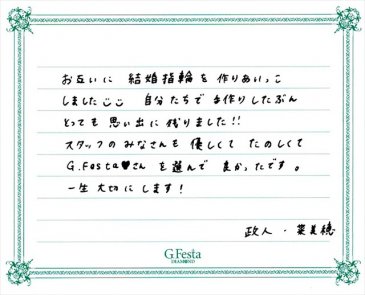 お互いに 結婚指輪を 作りあいっこ
しました 自分たちで 手作りしたぶん
とっても 思い出に 残りました!!
スタッフのみなさんも 優しくて たのしくて
G.Festa♥さん を選んで 良かったです。
一生大切にします!
政人・菜美穂
G.Festa
DIAMOND